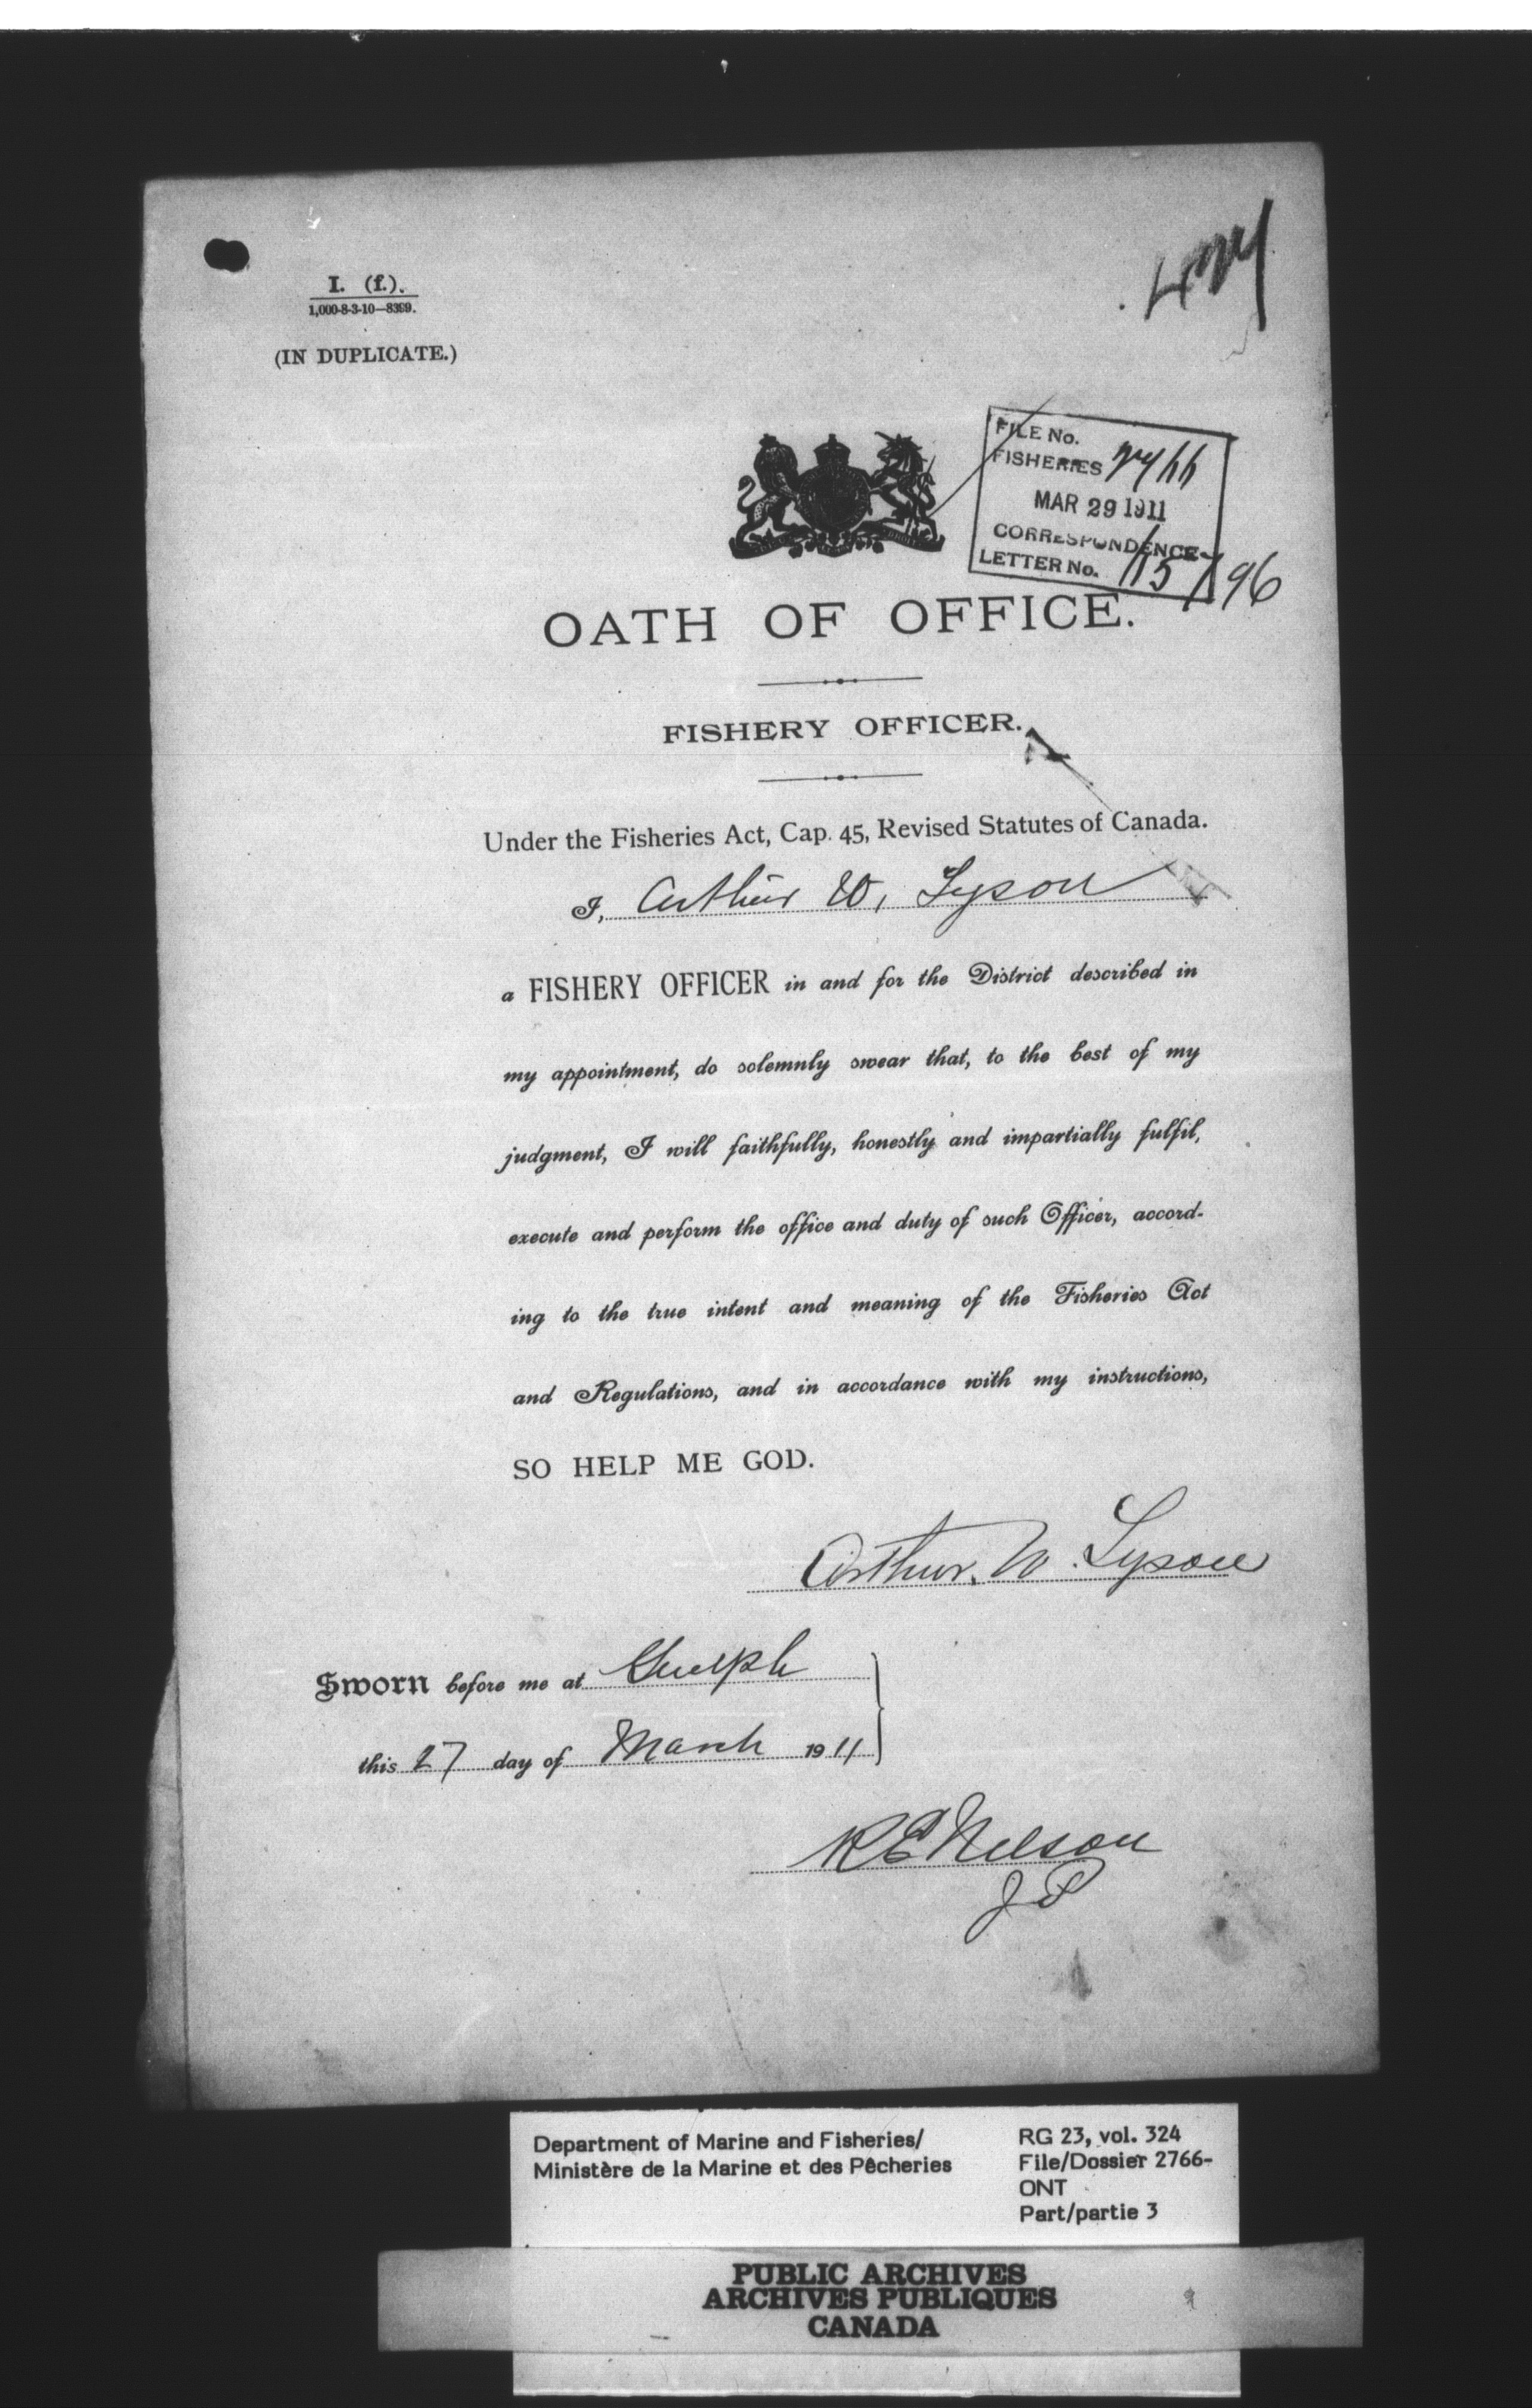 I. (f.).
1,000-8-3-10—8399.
(IN DUPLICATE.)
FILE No.
FISHERIES 2766
MAR 29 1911
CORRESPONDENCE
LETTER No. 115196
OATH OF OFFICE.
FISHERY OFFICER.
Under the Fisheries Act, Cap. 45, Revised Statutes of Canada.
I, Arthur W. Tyson
a FISHERY OFFICER in and for the District described in
my appointment, do solemnly swear that, to the best of my
judgment, I will faithfully, honestly and impartially fulfil,
execute and perform the office and duty of such Officer, accord-
ing to the true intent and meaning of the Fisheries Act
and Regulations, and in accordance with my instructions,
SO HELP ME GOD.
Arthur. W. Tyson
Sworn before me at Guelph
this 27 day of March 1911
R E Nelson
J P
Department of Marine and Fisheries/
Ministère de la Marine et des Pêcheries
RG 23, vol. 324
File/Dossier 2766-
ONT
Part/partie 3
PUBLIC ARCHIVES
ARCHIVES PUBLIQUES
CANADA